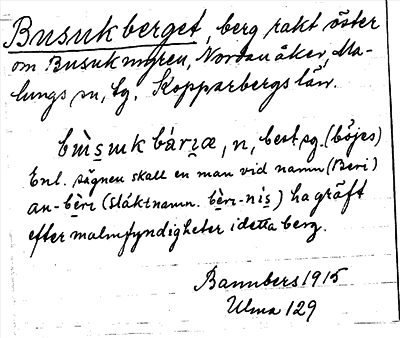 Busukberget, berg rakt öster
om Busukmyren, Nordanåker, Ma-
lungs sn, lg. Kopparbergs län.
bùs̲uk bárɩæ, n, best. sg. (böjes)
Enl. sägnen skall en man vid namn (Beri)
an-bèri (släktnamn. bèri-nis̲) ha gräft
efter malmfyndigheter i detta berg.
Bannbers 1915
Ulma 129